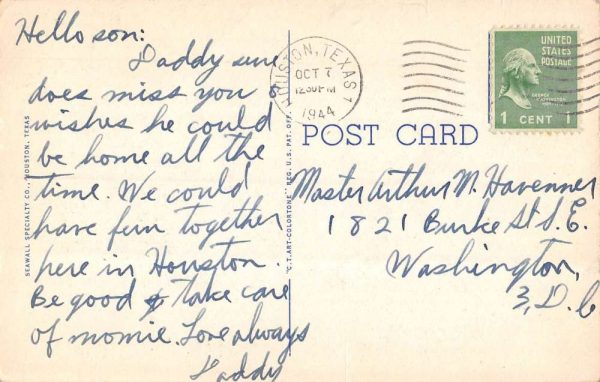 Hello son:
Daddy sure
does miss you &
wishes he could
be home all the
time. We could
have fun together
here in Houston.
Be good & take care
of momie. Love always
Daddy
SEAWALL SPECIALTY CO., HOUSTON, TEXAS
"C.T. ART-COLORTONE" REG. U.S. PAT. OFF.
HOUSTON, TEXAS 1
OCT 7
12:30 PM
1944
UNITED
STATES
POSTAGE
GEORGE
WASHINGTON
1 CENT 1
POST CARD
Master Arthur M. Havenner
1821 Burke St. S.E.
Washington,
3, D.C